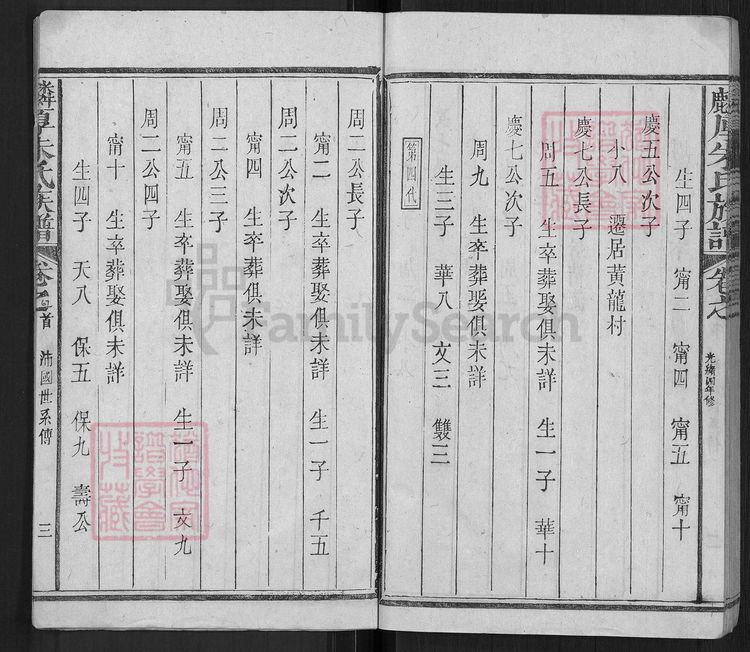 麟厚朱氏族譜
光緒四年修
生四子 甯二 甯四 甯五 甯十
慶五公次子
小八 遷居黃龍村
慶七公長子
周五 生卒葬娶俱未詳 生一子 華十
慶七公次子
周九 生卒葬娶俱未詳
生三子 華八 文三 雙三
第四代
周二公長子
甯二 生卒葬娶俱未詳 生一子 千五
周二公次子
甯四 生卒葬娶俱未詳
周二公三子
甯五 生卒葬娶俱未詳 生一子 文九
周二公四子
甯十 生卒葬娶俱未詳
生四子 天八 保五 保九 壽公
麟厚朱氏族譜
沛國世系傳
三
FamilySearch